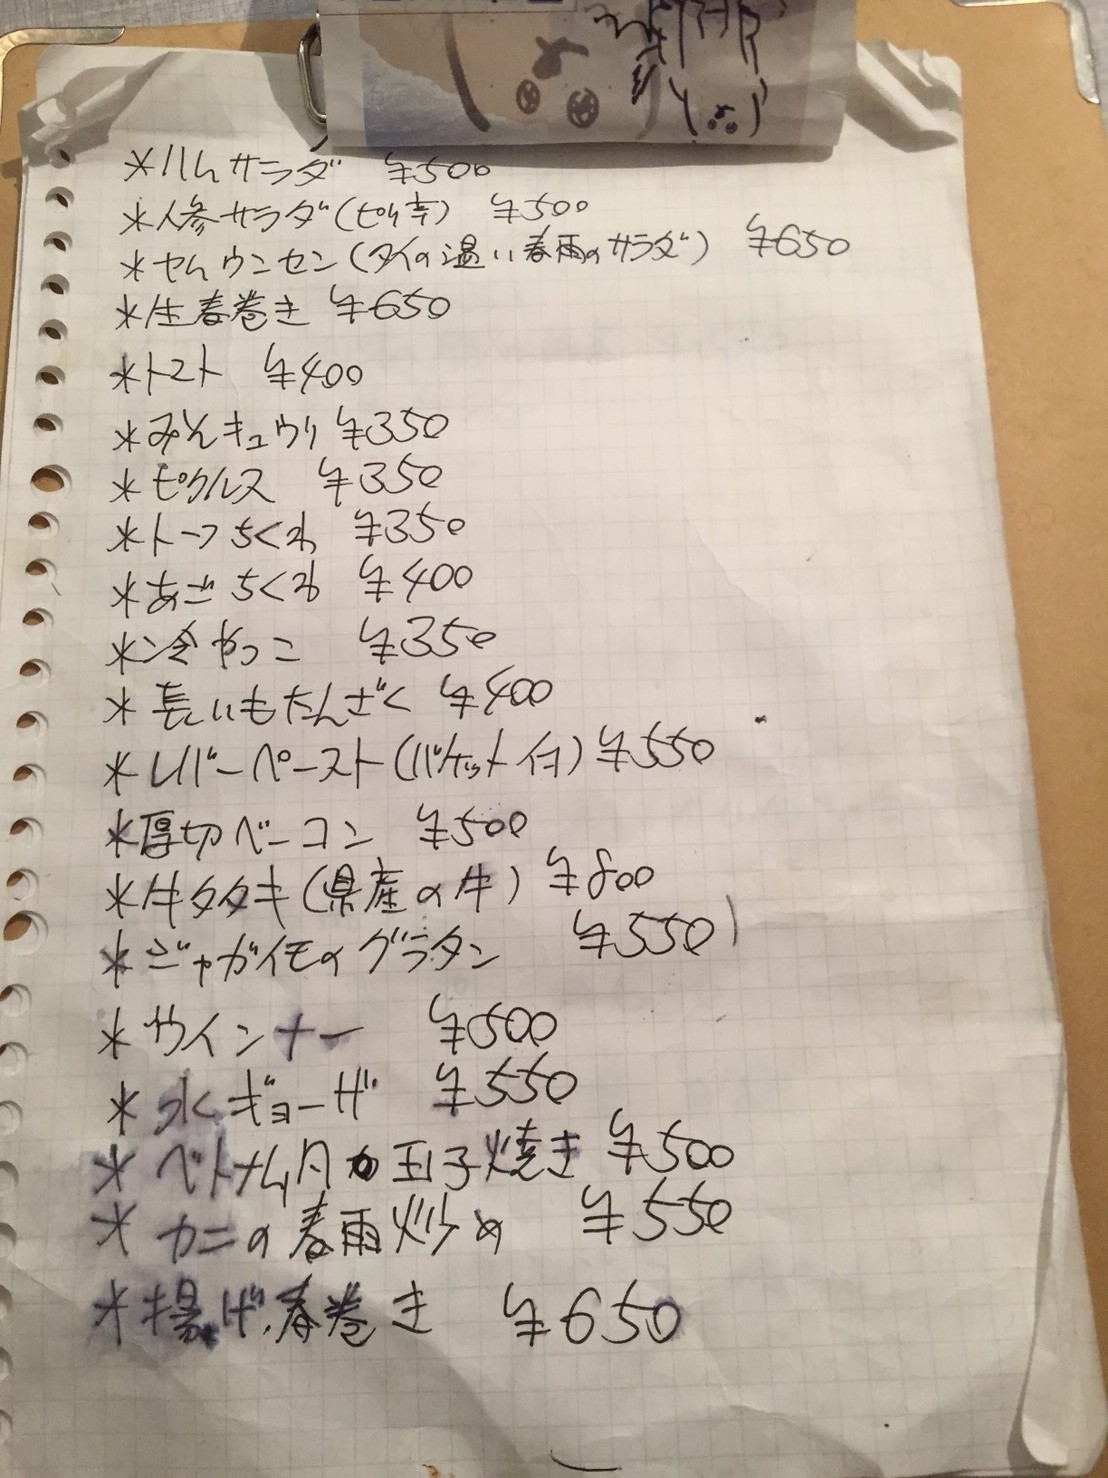 *ハムサラダ ¥500
*人参サラダ(ピリ辛) ¥500
*ヤムウンセン(タイの温い春雨のサラダ) ¥650
*生春巻き ¥650
*トマト ¥400
*みそキュウリ ¥350
*ピクルス ¥350
*トーフちくわ ¥350
*あごちくわ ¥400
*冷やっこ ¥350
*長いもたんざく ¥400
*レバーペースト(バケット付) ¥550
*厚切ベーコン ¥500
*牛タタキ(県産の牛) ¥800
*ジャガイモのグラタン ¥550
*ウインナー ¥500
*水ギョーザ ¥550
*ベトナム風玉子焼き ¥500
*カニの春雨炒め ¥550
*揚げ春巻き ¥650